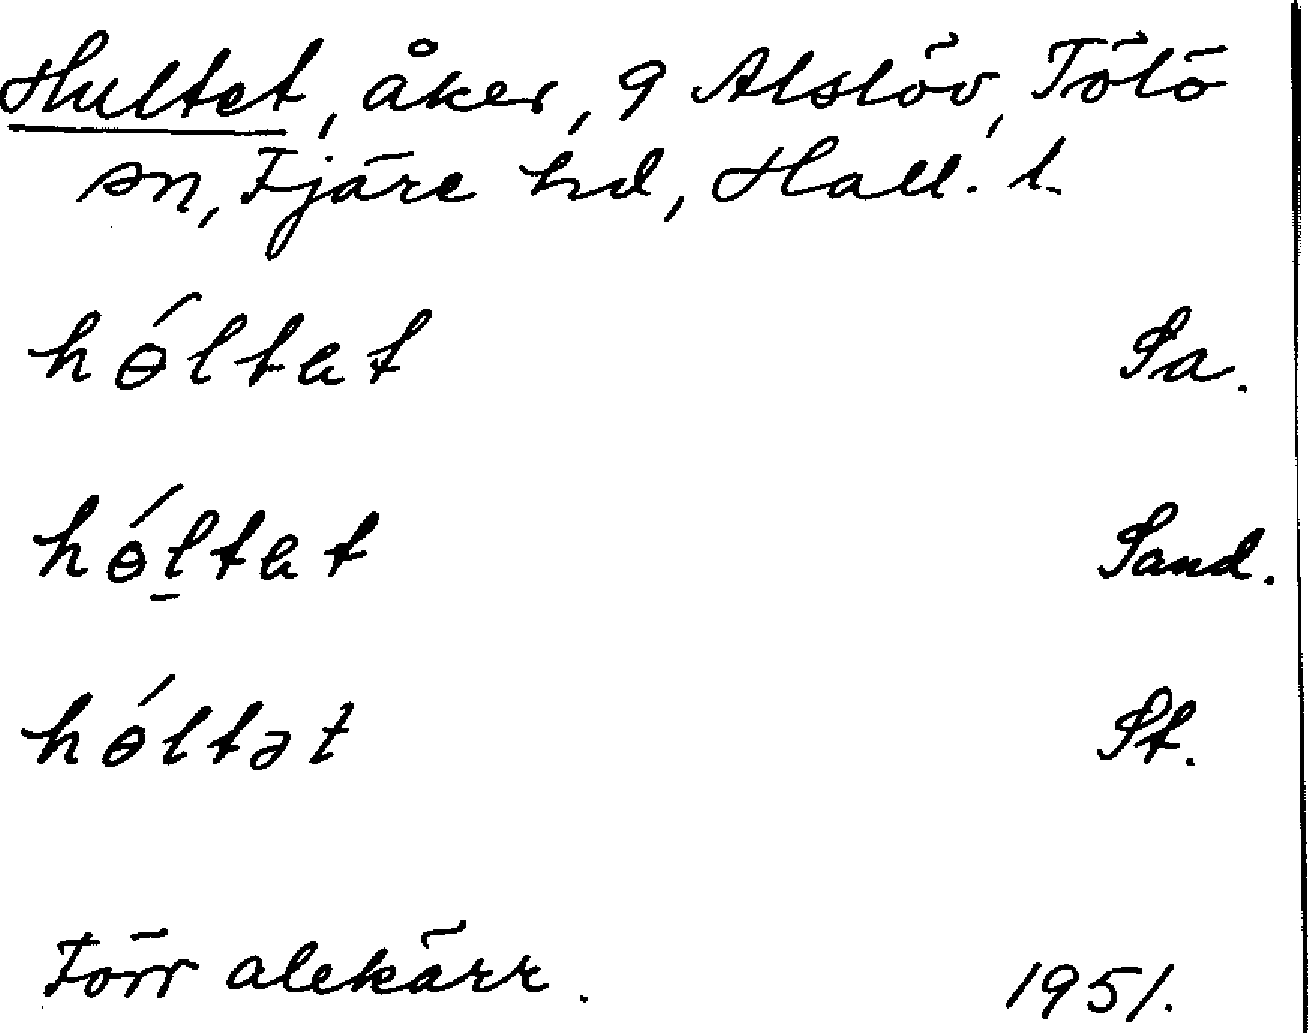 Hultet, åker, 9 Alslöv, Tölö
sn, Fjäre hd, Hall. l.
hɵ́ltat Sa.
hɵ́l̠tat Sand.
hɵ́ltət St.
Förr alekärr. 1951.